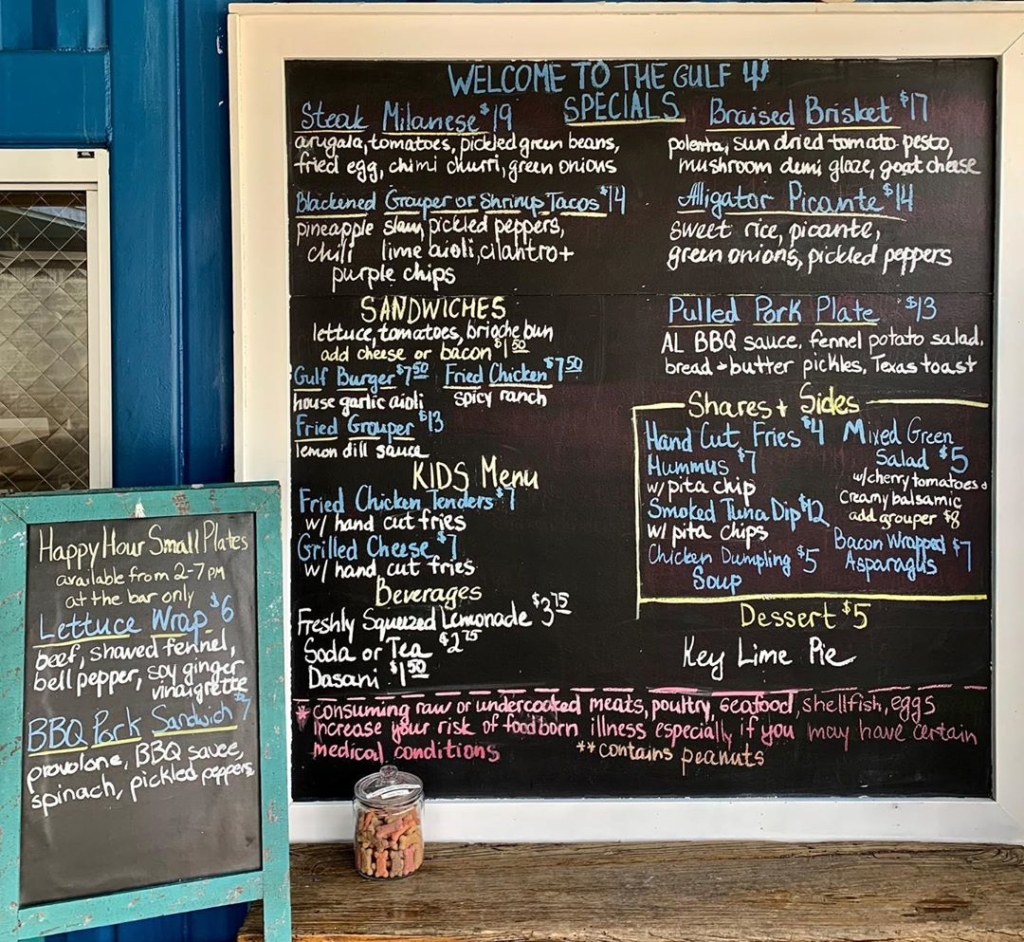 WELCOME TO THE GULF
SPECIALS
Steak Milanese $19
arugala, tomatoes, pickled green beans,
fried egg, chimi churri, green onions
Blackened Grouper or Shrimp Tacos $14
pineapple slaw, pickled peppers,
chili lime aioli, cilantro +
purple chips
Braised Brisket $17
polenta, sun dried tomato pesto,
mushroom demi glaze, goat cheese
Alligator Picante $14
sweet rice, picante,
green onions, pickled peppers
Pulled Pork Plate $13
AL BBQ sauce, fennel potato salad,
bread + butter pickles, Texas toast
SANDWICHES
lettuce, tomatoes, brioche bun
add cheese or bacon $1.50
Gulf Burger $7.50
house garlic aioli
Fried Chicken $7.50
spicy ranch
Fried Grouper $13
lemon dill sauce
KIDS Menu
Fried Chicken Tenders $7
w/ hand cut fries
Grilled Cheese $7
w/ hand cut fries
Beverages
Freshly Squeezed Lemonade $3.75
Soda or Tea $2.75
Dasani $1.50
Shares + Sides
Hand Cut Fries $4
Hummus $7
w/ pita chip
Smoked Tuna Dip $12
w/ pita chips
Chicken Dumpling $5
Soup
Mixed Green
Salad $5
w/ cherry tomatoes +
creamy balsamic
add grouper $8
Bacon Wrapped $7
Asparagus
Dessert $5
Key Lime Pie
* consuming raw or undercooked meats, poultry, seafood, shellfish, eggs
increase your risk of foodborn illness especially if you may have certain
medical conditions **contains peanuts
Happy Hour Small Plates
available from 2-7 PM
at the bar only
Lettuce Wrap $6
beef, shaved fennel,
bell pepper, soy ginger
vinaigrette
BBQ Pork Sandwich $7
provolone, BBQ sauce,
spinach, pickled peppers